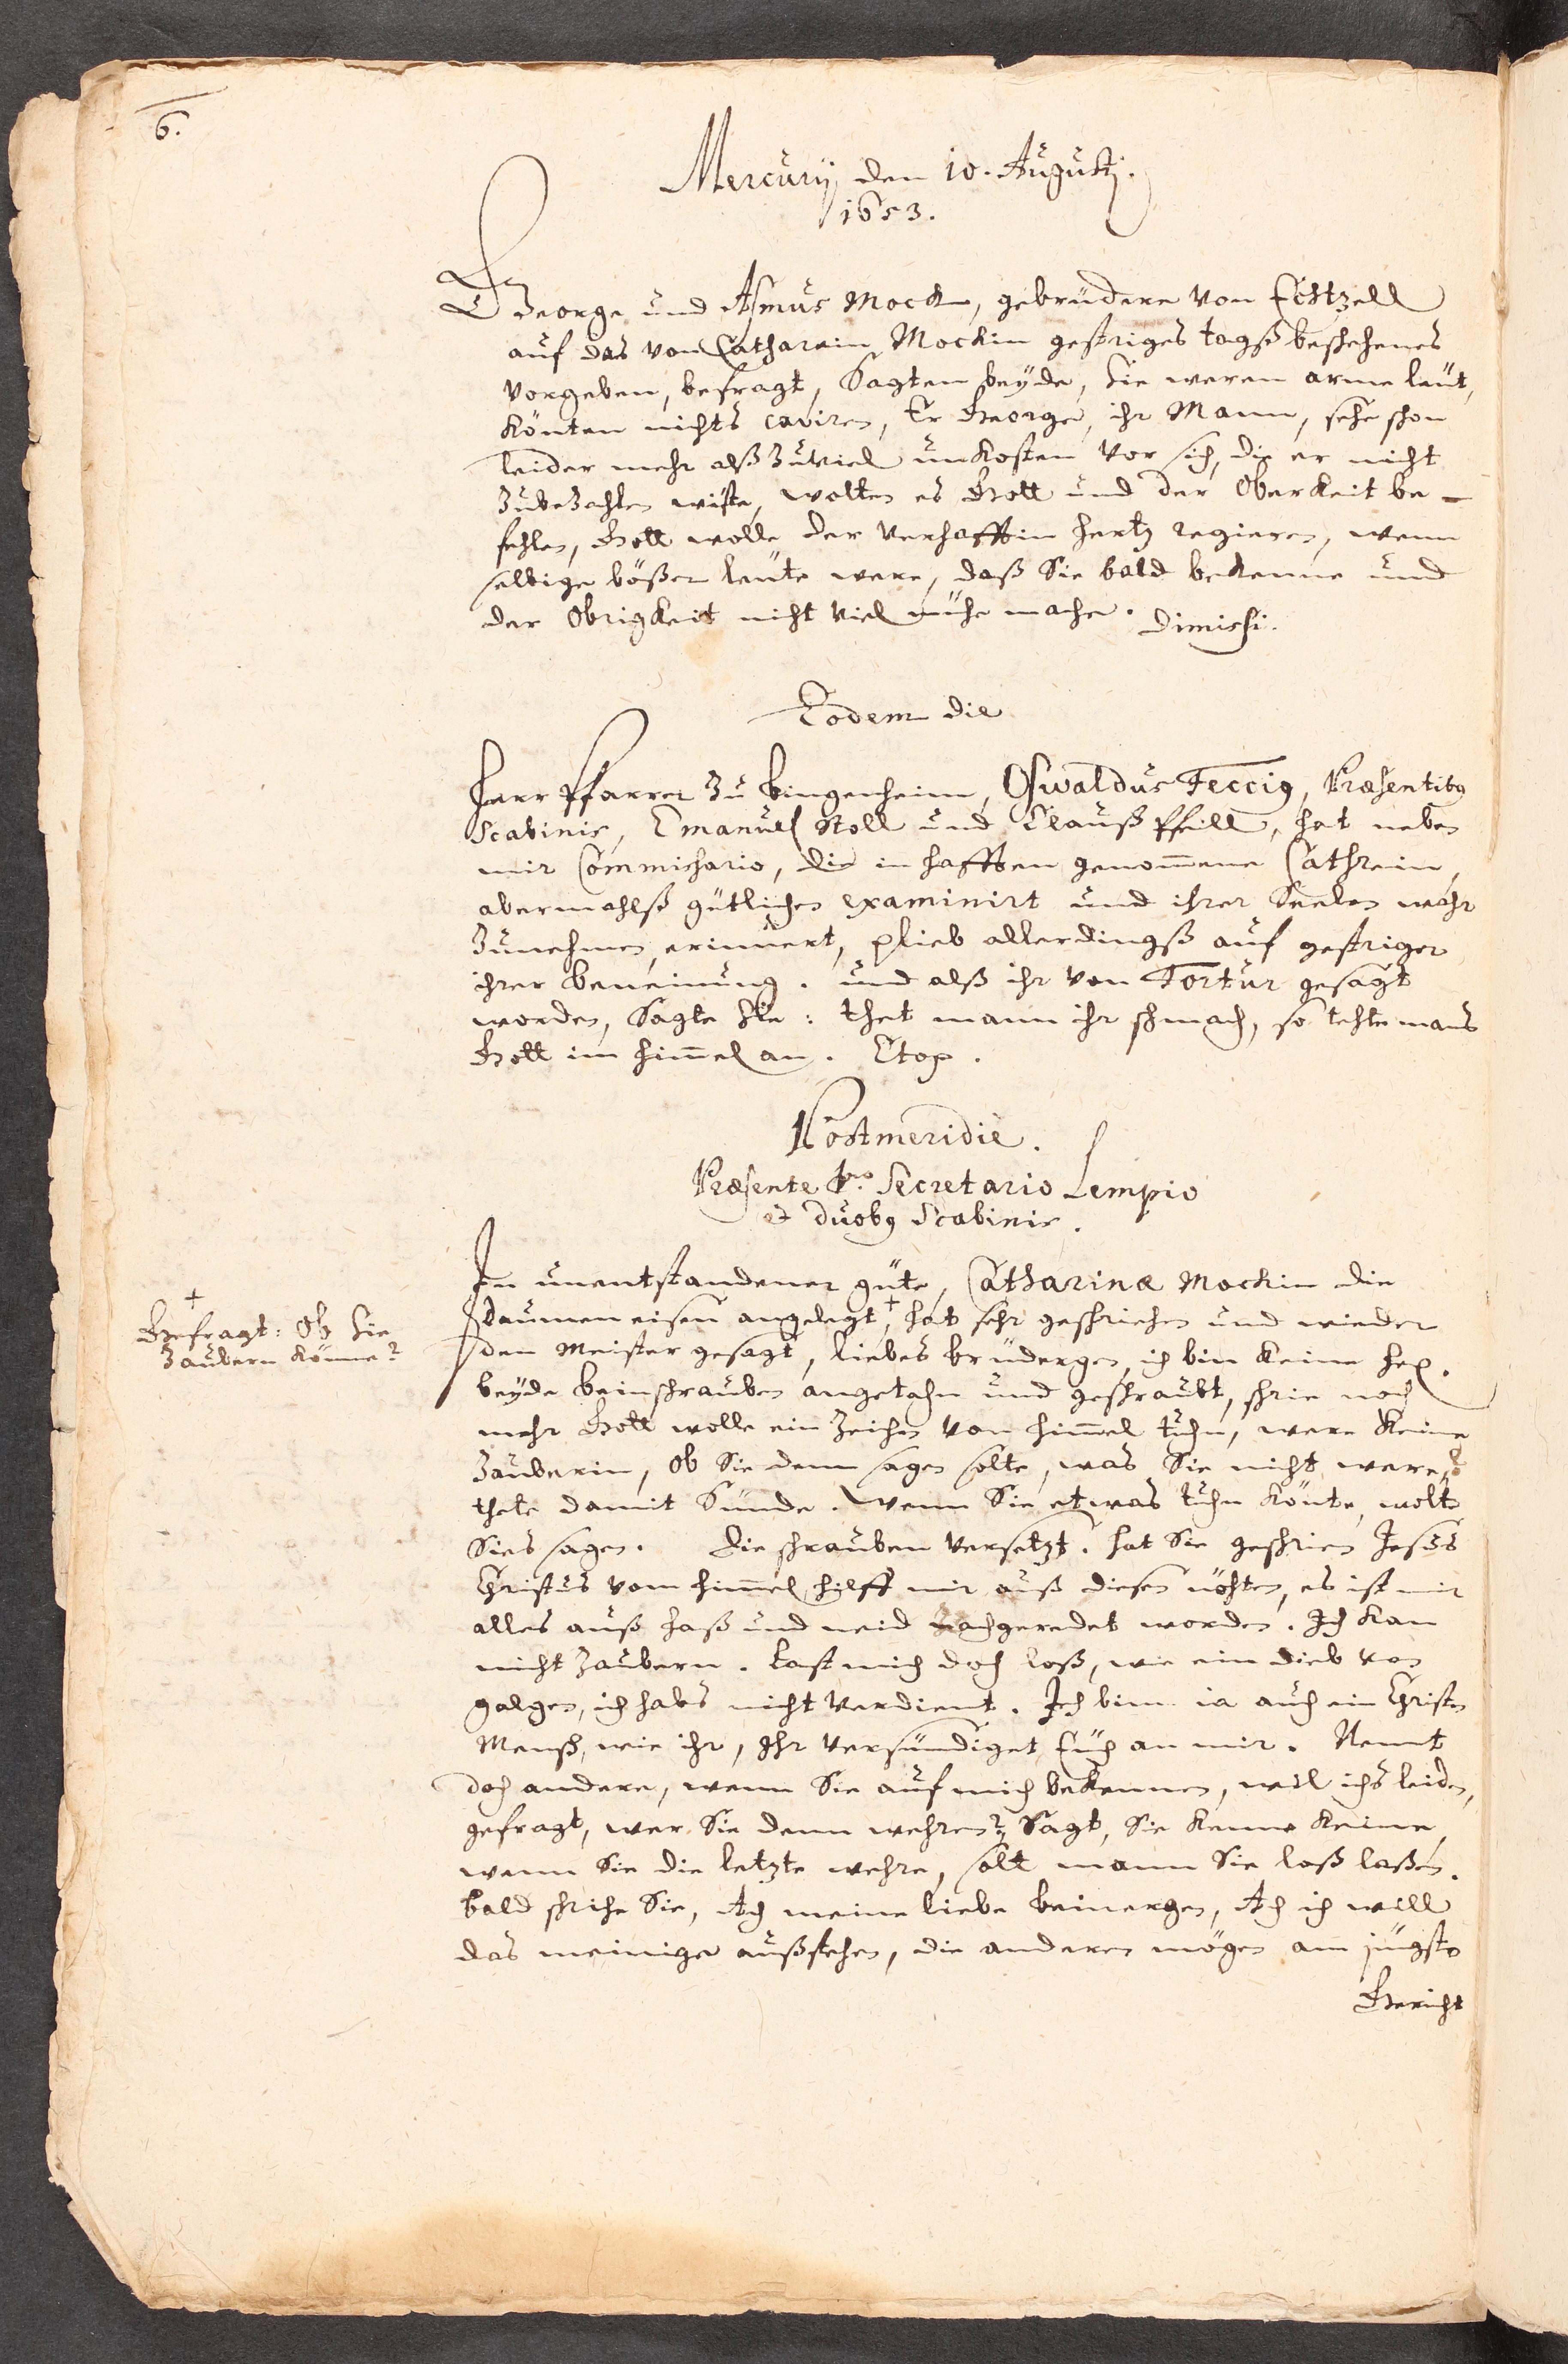 6.
Mercurij den 10. Augusti.
1653.
George und Asmus Mock, gebrüdere von Echtzell
auf das von Catharein Mockin gestriges tagß beschehenes
vorgeben, befragt, Sagten beyde, Sie weren arme leüt,
könten nichts caviren, Er George, ihr Mann, sehe schon
leider mehr alß zuviel unkosten vor sich, die er nicht
zubezahlen wiste, wolten es Gott und der Oberkeit be-
fehlen, Gott wolle der verhafftin hertz regieren, wenn
selbige bößer leute were, daß Sie bald bekenne und
der Obrigkeit nicht viel mühe mache. Dimissi.
Eodem die
Herr Pfarrer zu Bingenheim, Oswaldus Feccius, Præsentibus
Scabinis, Emanuel Stoll und Clauß Pfeill, hat neben
mir Commissario, die in hafften genommene Cathrein,
abermahlß gütlichen examinirt und ihrer Seelen wahr
zunehmen, erinnert, plieb allerdingß auf gestriger
ihrer beneinung. und alß ihr von Tortur gesagt
worden, Sagte Sie: thet mann ihr schmach, so tehte mans
Gott im himmel an. Stop.
Postmeridie.
Præsente Dno. Secretario Lempio
et duobus Scabinis.
In unentstandener güte, Catharinæ Mockin die
daumen eisen angelegt +, hat sehr geschriehen und wieder
den Meister gesagt, liebes brüdergen, ich bin keine hex.
beyde beinschrauben angetahn und geschraubt, schrie noch
mehr Gott wolle ein zeichen vom himmel tuhn, were keine
zauberin, ob Sie denn sagen solte, was Sie nicht were?
thete damit Sünde. wenn Sie etwas tuhn könte, wolte
Sies sagen. Die schrauben versetzt. hat Sie geschrien Jesus
Christus vom himmel hilff mir auß diesen nöhten, es ist mir
alles auß haß und neid nachgeredet worden. Ich kan
nicht zaubern. Last mich doch loß, wie ein dieb vom
galgen, ich habs nicht verdient. Ich binn ia auch ein Christen
Mensch, wie ihr, Ihr versündiget Euch an mir. Nemt
doch andere, wenn Sie auf mich bekennen, wil ichs leiden,
gefragt, wer Sie denn wehren? Sagt, Sie kenne keine,
wenn Sie die letzte wehre, solt mann Sie loß laßen.
bald schrihe Sie, Ach meine liebe beinergen, Ach ich will
das meinige außstehen, die anderen mögen am jüngsten
Gericht
+
Gefragt: Ob Sie
zaubern könne?